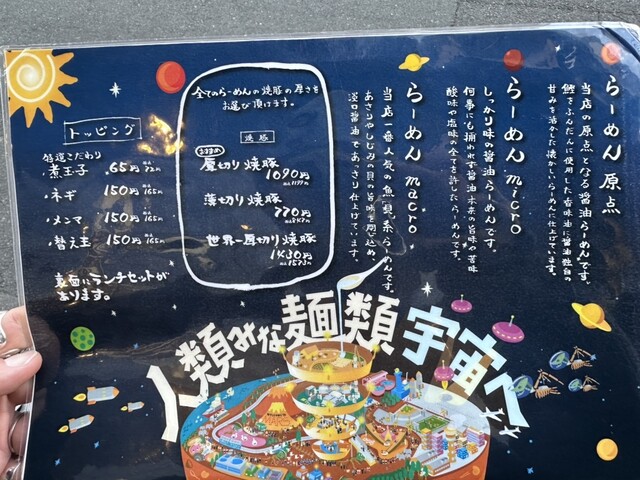 らーめん 原点
当店の原点となる醤油らーめんです。
鰹をふんだんに使用した香味油に醤油独自の
甘みを活かした懐かしいらーめんに仕上げています。
らーめん micro
しっかり味の醤油らーめんです。
何事にも捕われず醤油本来の旨味や苦味
酸味や塩味の全てを許したらーめんです。
らーめん macro
当店一番人気の魚貝系らーめんです。
あさりやしじみの貝の旨味を閉じ込め、
淡口醤油であっさり仕上げています。
全てのらーめんの焼豚の厚さを
お選び頂けます。
焼豚
おすすめ
厚切り焼豚
1090円
税込1199円
薄切り焼豚
770円
税込847円
世界一厚切り焼豚
1430円
税込1573円
トッピング
特選こだわり
・煮玉子 65円 税込72円
・ネギ 150円 税込165円
・メンマ 150円 税込165円
・替え玉 150円 税込165円
裏面にランチセットが
あります。
人類みな麺類宇宙へ